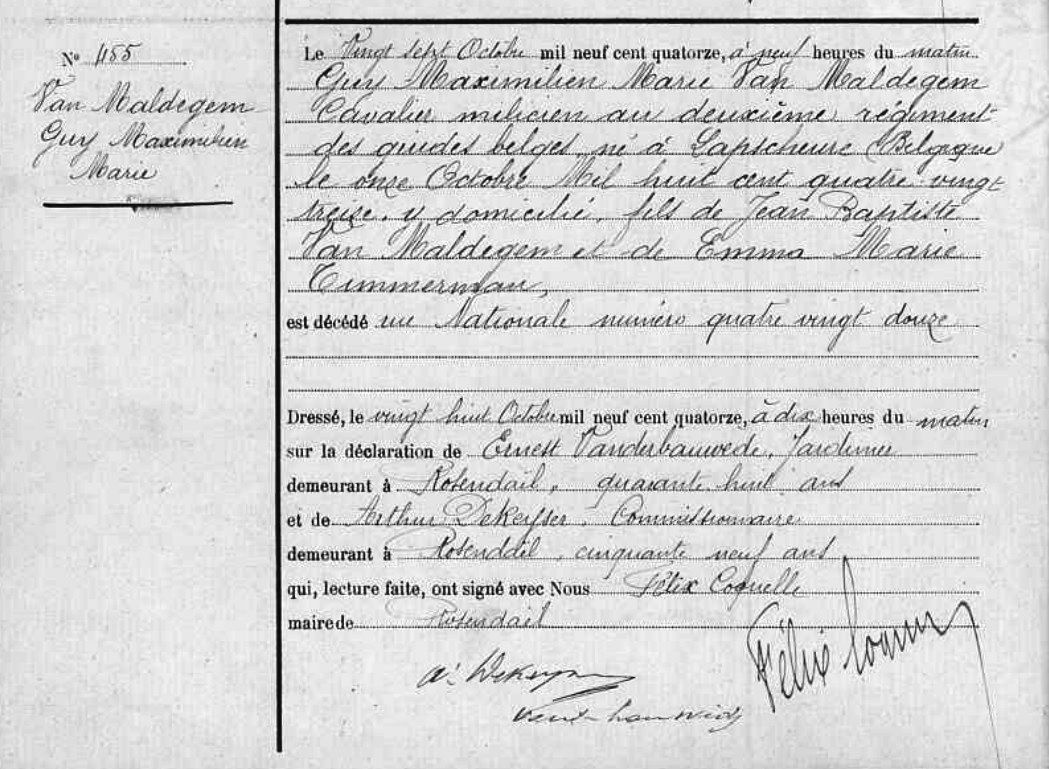 N° 455
Van Maldegem
Guy Maximilien
Marie
Le Vingt sept Octobre mil neuf cent quatorze, à neuf heures du matin
Guy Maximilien Marie Van Maldegem
Cavalier milicien au deuxième régiment
des guides belges, né à Lapscheure (Belgique
le onze Octobre Mil huit cent quatre vingt
treize, y domicilié, fils de Jean Baptiste
Van Maldegem et de Emma Marie
Timmerman,
est décédé rue Nationale numéro quatre vingt douze
Dressé, le vingt huit Octobre mil neuf cent quatorze, à dix heures du matin
sur la déclaration de Ernest Vanderbauwede, Jardinier
demeurant à Rosendaël, quarante huit ans
et de Arthur DeKeyser, Commissionnaire
demeurant à Rosendaël, cinquante neuf ans
qui, lecture faite, ont signé avec Nous Félix Coquelle
maire de Rosendaël
Félix